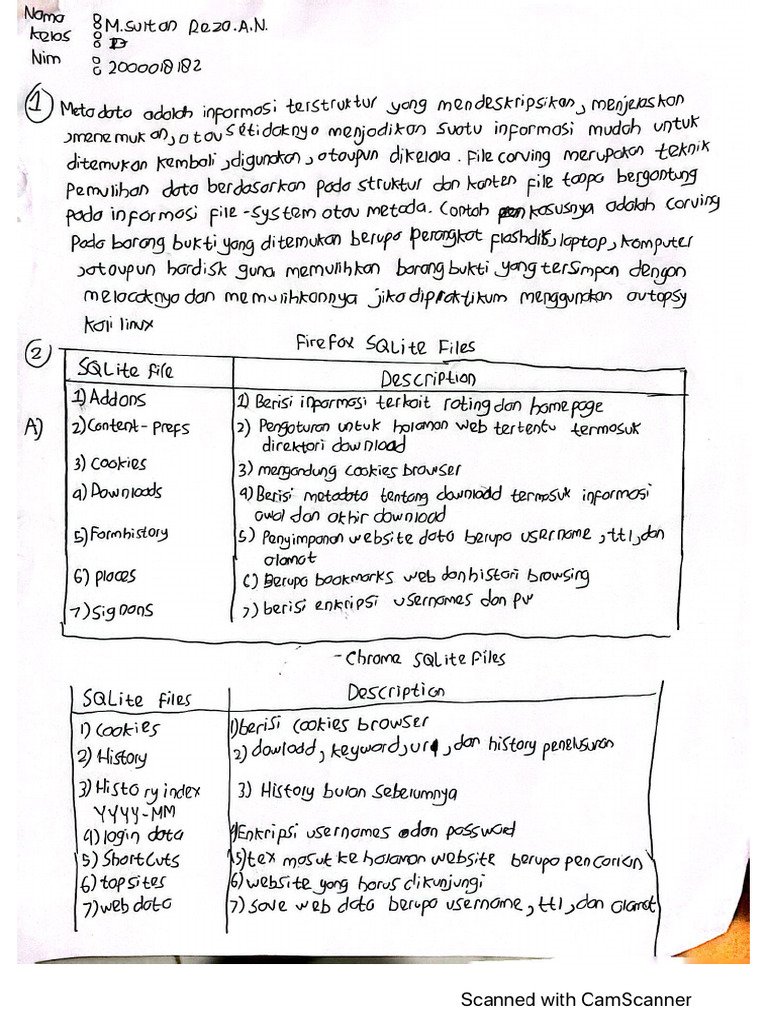 Nama : M.Sultan Reza.A.N.
Kelas : D
Nim : 2000018182
1 Metadata adalah informasi terstruktur yang mendeskripsikan, menjelaskan
,menemukan, atau setidaknya menjadikan suatu informasi mudah untuk
ditemukan kembali, digunakan, ataupun dikelola. File carving merupakan teknik
Pemulihan data berdasarkan pada struktur dan konten file tanpa bergantung
pada informasi file-system atau metada. Contoh kasusnya adalah carving
Pada barang bukti yang ditemukan berupa perangkat flashdik, laptop, komputer
,ataupun hardisk guna memulihkan barang bukti yang tersimpan dengan
melacaknya dan memulihkannya jika dipraktikum menggunakan autopsy
kali linux
2 FireFox SQLite Files
SQLite file Description
A) 1) Addons 1) Berisi informasi terkait rating dan homepage
2) Content-Prefs 2) Pengaturan untuk halaman web tertentu termasuk
direktori download
3) Cookies 3) mengandung cookies browser
4) Downloads 4) Berisi metadata tentang download termasuk informasi
awal dan akhir download
5) Formhistory 5) Penyimpanan website data berupa username, ttl, dan
alamat
6) places 6) Berupa bookmarks web dan histori browsing
7) Signons 7) berisi enkripsi usernames dan pw
- Chrome SQLite files
SQLite files Description
1) Cookies 1) berisi cookies browser
2) History 2) dowload, keyword, url, dan history penelusuran
3) History index 3) History bulan sebelumnya
YYYY-MM
4) login data 4) Enkripsi usernames dan password
5) Shortcuts 5) tex masuk ke halaman website berupa pencarian
6) top sites 6) website yang harus dikunjungi
7) web data 7) save web data berupa username, ttl, dan alamat
Scanned with CamScanner